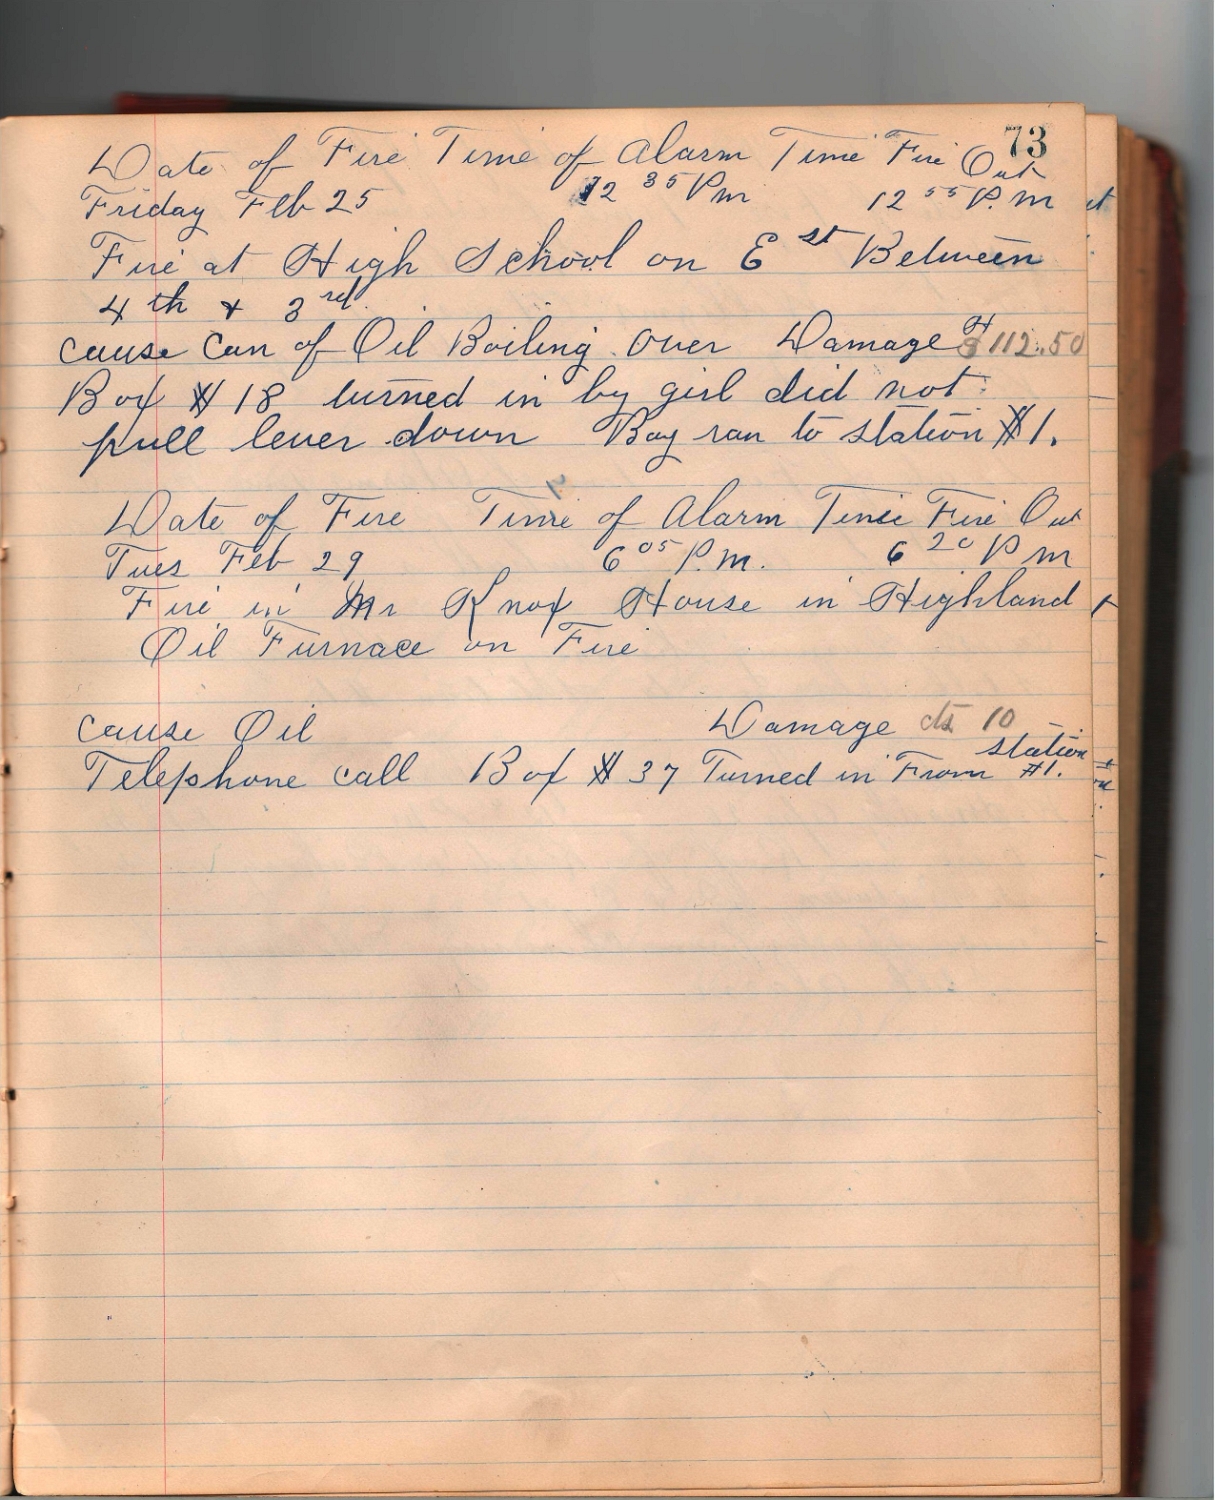 73
Date of Fire Time of Alarm Time Fire Out
Friday Feb 25 12 35 P m 12 55 P. m
Fire at High School on E st Between
4 th & 3 rd
cause Can of Oil Boiling over Damage $112.50
Box # 18 turned in by girl did not
pull lever down Boy ran to station #1.
Date of Fire Time of Alarm Time Fire Out
Tues Feb 29 6 05 P. m. 6 20 P m
Fire in Mr Knox House in Highland
Oil Furnace on Fire
cause Oil Damage cts 10
station
Telephone call Box # 37 Turned in From #1.